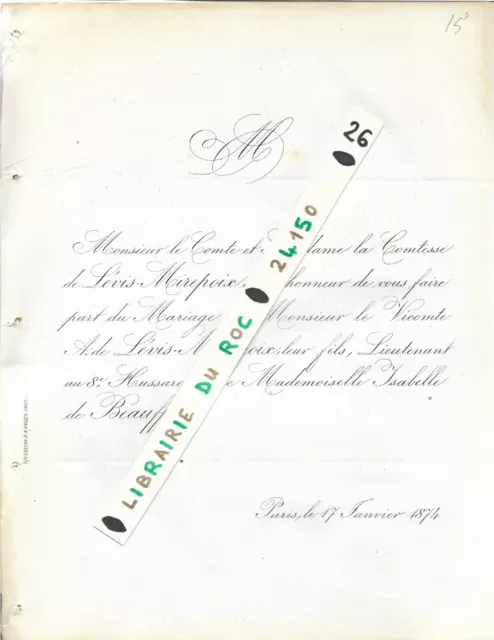 15
M
26
Monsieur le Comte et dame la Comtesse
de Lévis-Mirepoix, honneur de vous faire
part du Mariage Monsieur le Vicomte
A. de Lévis-M oix, leur fils, Lieutenant
au 8e Hussar e Mademoiselle Isabelle
de Beauff
LIBRAIRIE DU ROC 24150
Paris, le 17 Janvier 1874